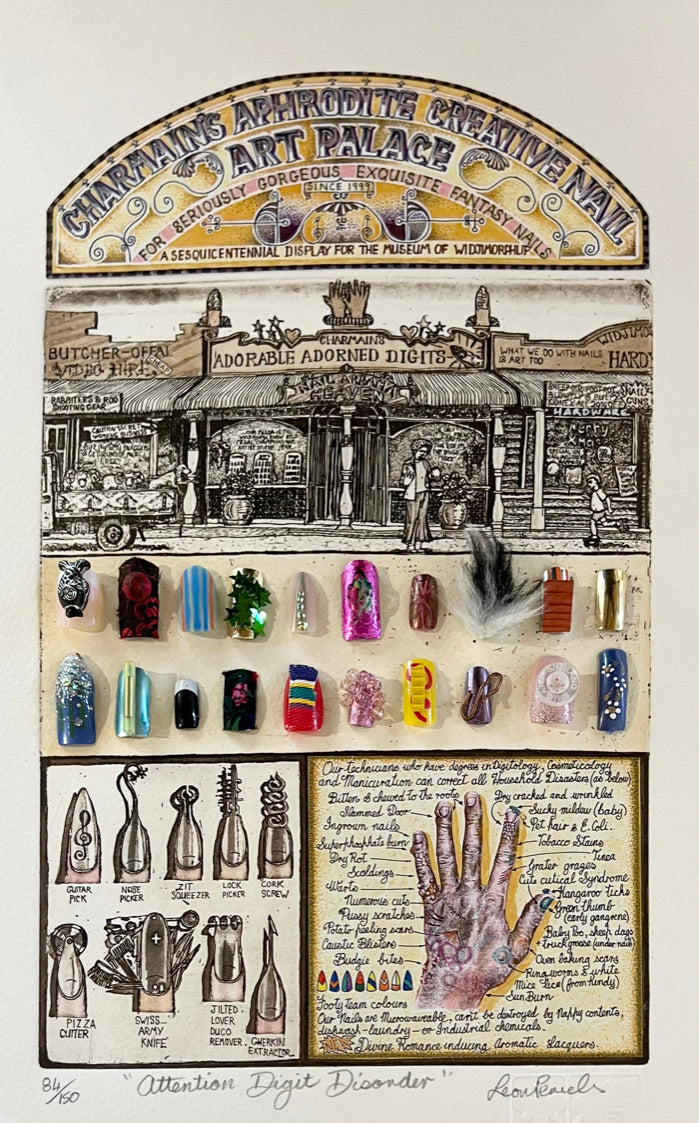 CHARMAIN'S APHRODITE CREATIVE NAIL
ART PALACE
FOR SERIOUSLY GORGEOUS EXQUISITE FANTASY NAILS
SINCE 1999
A SESQUICENTENNIAL DISPLAY FOR THE MUSEUM OF WIDJIMORPHUP
BUTCHER-OFFAL
VIDEO HIRE
CHARMAIN'S
ADORABLE ADORNED DIGITS
WHAT WE DO WITH NAILS
IS ART TOO
WIDJIMO
HARDW
RABBITERS & ROO
SHOOTING GEAR
NAIL ART
HEAVEN
NAIL
GUNS
HARDWARE
GUITAR
PICK
NOSE
PICKER
ZIT
SQUEEZER
LOCK
PICKER
CORK
SCREW
PIZZA
CUTTER
SWISS-
ARMY
KNIFE
JILTED
LOVER
DUCO
REMOVER.
GHERKIN
EXTRACTOR
Our technicians who have degrees in Digitology, Cosmeticology
and Manicuration can correct all Household Disasters (as below)
Bitten & chewed to the roots
Slammed Door
Ingrown nails
Superphosphate burn
Dry Rot
Scaldings
Warts
Numerous cuts
Pussy scratches
Potato peeling scars
Caustic Blisters
Budgie bites
Dry cracked and wrinkled
Sucky mildew (baby)
Pet hair & E.Coli.
Tobacco Stains
Tinea
Grater grazes
Cuts cutical Syndrome
Kangaroo ticks
Green thumb
(early gangrene)
Baby Poo, sheep dags
+ truck grease (under nail)
Oven baking scars
Ringworms & white
Mice Lice (from Kindy)
Sun Burn
Footy team colours
Our Nails are Microwaveable, can't be destroyed by Nappy contents,
dishwash-laundry - or Industrial chemicals.
NEW Divine Romance inducing Aromatic Lacquers.
84/150
"Attention Digit Disorder"